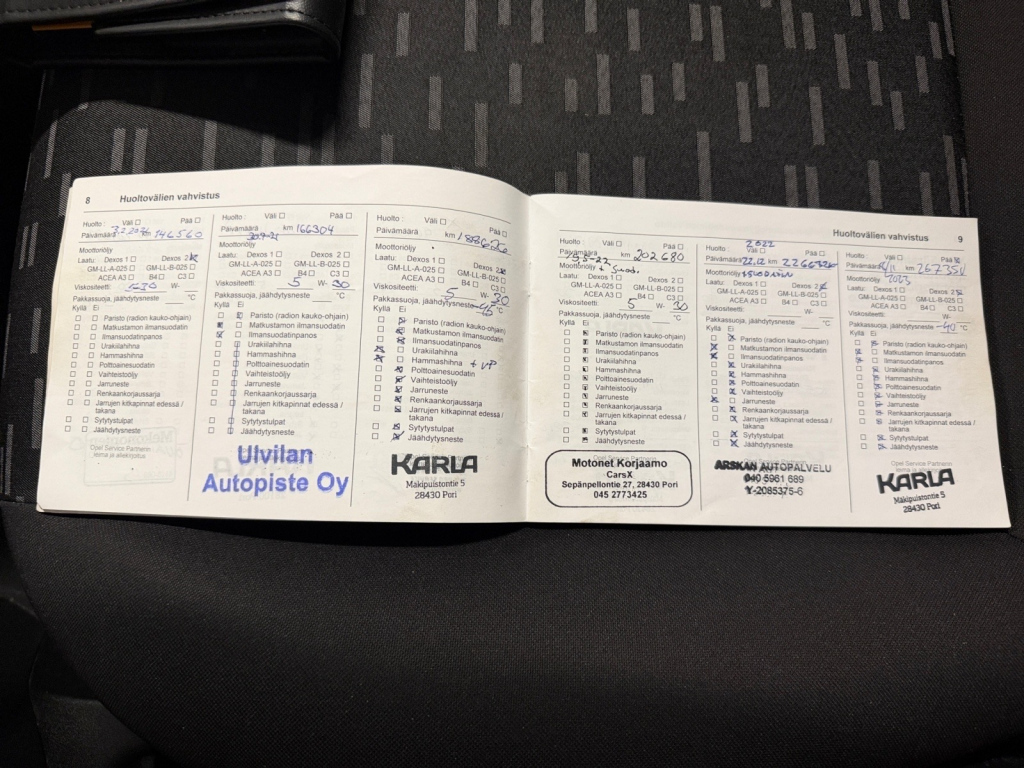 8 Huoltovälien vahvistus
Huolto : Väli Pää
Päivämäärä km 146560
Moottoriöljy
Laatu: Dexos 1 Dexos 2
GM-LL-A-025 GM-LL-B-025
ACEA A3 B4 C3
Viskositeetti: W-
Pakkassuoja, jäähdytysneste °C
Kyllä Ei
Paristo (radion kauko-ohjain)
Matkustamon ilmansuodatin
Ilmansuodatinpanos
Urakiilahihna
Hammashihna
Polttoainesuodatin
Vaihteistoöljy
Jarruneste
Renkaankorjaussarja
Jarrujen kitkapinnat edessä /
takana
Sytytystulpat
Jäähdytysneste
Opel Service Partnerin
leima ja allekirjoitus
Huolto : Väli Pää
Päivämäärä km 166304
Moottoriöljy
Laatu: Dexos 1 Dexos 2
GM-LL-A-025 GM-LL-B-025
ACEA A3 B4 C3
Viskositeetti: 5 W- 30
Pakkassuoja, jäähdytysneste °C
Kyllä Ei
Paristo (radion kauko-ohjain)
Matkustamon ilmansuodatin
Ilmansuodatinpanos
Urakiilahihna
Hammashihna
Polttoainesuodatin
Vaihteistoöljy
Jarruneste
Renkaankorjaussarja
Jarrujen kitkapinnat edessä /
takana
Sytytystulpat
Jäähdytysneste
Ulvilan
Autopiste Oy
Huolto : Väli Pää
Päivämäärä km 188626
Moottoriöljy
Laatu: Dexos 1 Dexos 2
GM-LL-A-025 GM-LL-B-025
ACEA A3 B4 C3
Viskositeetti: 5 W- 30
Pakkassuoja, jäähdytysneste -45 °C
Kyllä Ei
Paristo (radion kauko-ohjain)
Matkustamon ilmansuodatin
Ilmansuodatinpanos
Urakiilahihna
Hammashihna + VP
Polttoainesuodatin
Vaihteistoöljy
Jarruneste
Renkaankorjaussarja
Jarrujen kitkapinnat edessä /
takana
Sytytystulpat
Jäähdytysneste
KARLA
Mäkipuistontie 5
28430 Pori
Huoltovälien vahvistus 9
Huolto : Väli Pää
Päivämäärä km 202680
19.5-22
Moottoriöljy + Suod.
Laatu: Dexos 1 Dexos 2
GM-LL-A-025 GM-LL-B-025
ACEA A3 B4 C3
Viskositeetti: 5 W- 30
Pakkassuoja, jäähdytysneste °C
Kyllä Ei
Paristo (radion kauko-ohjain)
Matkustamon ilmansuodatin
Ilmansuodatinpanos
Urakiilahihna
Hammashihna
Polttoainesuodatin
Vaihteistoöljy
Jarruneste
Renkaankorjaussarja
Jarrujen kitkapinnat edessä /
takana
Sytytystulpat
Jäähdytysneste
Motonet Korjaamo
CarsX
Sepänpellontie 27, 28430 Pori
045 2773425
2022
Huolto : Väli Pää
Päivämäärä 22.12 km
Moottoriöljy +suodatin
Laatu: Dexos 1 Dexos 2
GM-LL-A-025 GM-LL-B-025
ACEA A3 B4 C3
Viskositeetti: W-
Pakkassuoja, jäähdytysneste °C
Kyllä Ei
Paristo (radion kauko-ohjain)
Matkustamon ilmansuodatin
Ilmansuodatinpanos
Urakiilahihna
Hammashihna
Polttoainesuodatin
Vaihteistoöljy
Jarruneste
Renkaankorjaussarja
Jarrujen kitkapinnat edessä /
takana
Sytytystulpat
Jäähdytysneste
Opel Service Partnerin
ARSKAN AUTOPALVELU
040 5961 689
Y-2085375-6
Huolto : Väli Pää
Päivämäärä km
Moottoriöljy 2023
Laatu: Dexos 1 Dexos 2
GM-LL-A-025 GM-LL-B-025
ACEA A3 B4 C3
Viskositeetti: W-
Pakkassuoja, jäähdytysneste -40 °C
Kyllä Ei
Paristo (radion kauko-ohjain)
Matkustamon ilmansuodatin
Ilmansuodatinpanos
Urakiilahihna
Hammashihna
Polttoainesuodatin
Vaihteistoöljy
Jarruneste
Renkaankorjaussarja
Jarrujen kitkapinnat edessä /
takana
Sytytystulpat
Jäähdytysneste
Opel Service Partnerin
KARLA
Mäkipuistontie 5
28430 Pori